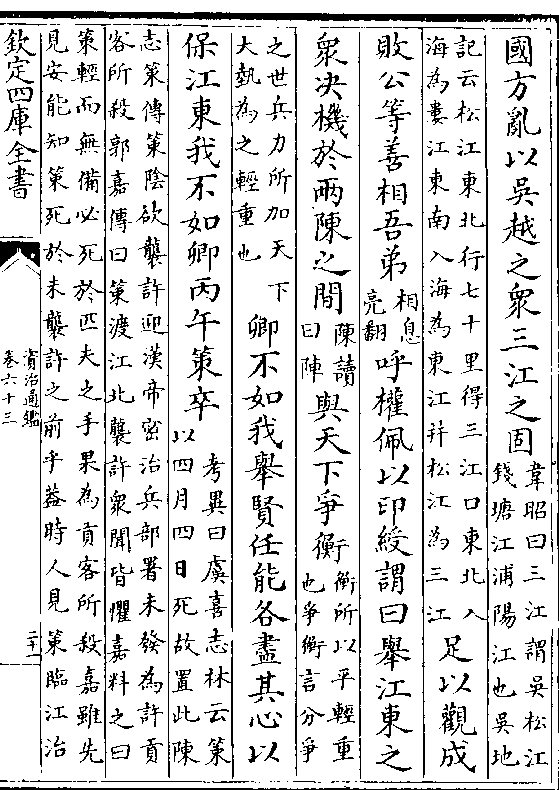 國方亂以吳越之衆三江之固韋昭曰三江謂吳松江
錢塘江浦陽江也吳地
記云松江東北行七十里得三江口東北入
海為婁江東南入海為東江并松江為三江足以觀成
敗公等善相吾弟相息
亮翻呼權佩以印綬謂曰舉江東之
衆决機於兩陳之間陳讀
曰陣與天下爭衡衡所以平輕重
也爭衡言分爭
之世兵力所加天下
大埶為之輕重也卿不如我舉賢任能各盡其心以
保江東我不如卿丙午策卒考異曰虞喜志林云策
以四月四日死故置此陳
志策傳策陰欲襲許迎漢帝密治兵部署未發為許貢
客所殺郭嘉傳曰策渡江北襲許衆聞皆懼嘉料之曰
策輕而無備必死於匹夫之手果為貢客所殺嘉雖先
見安能知策死於未襲許之前乎葢時人見策臨江治
欽定四庫全書
資治通鑑
卷六十三
二十一